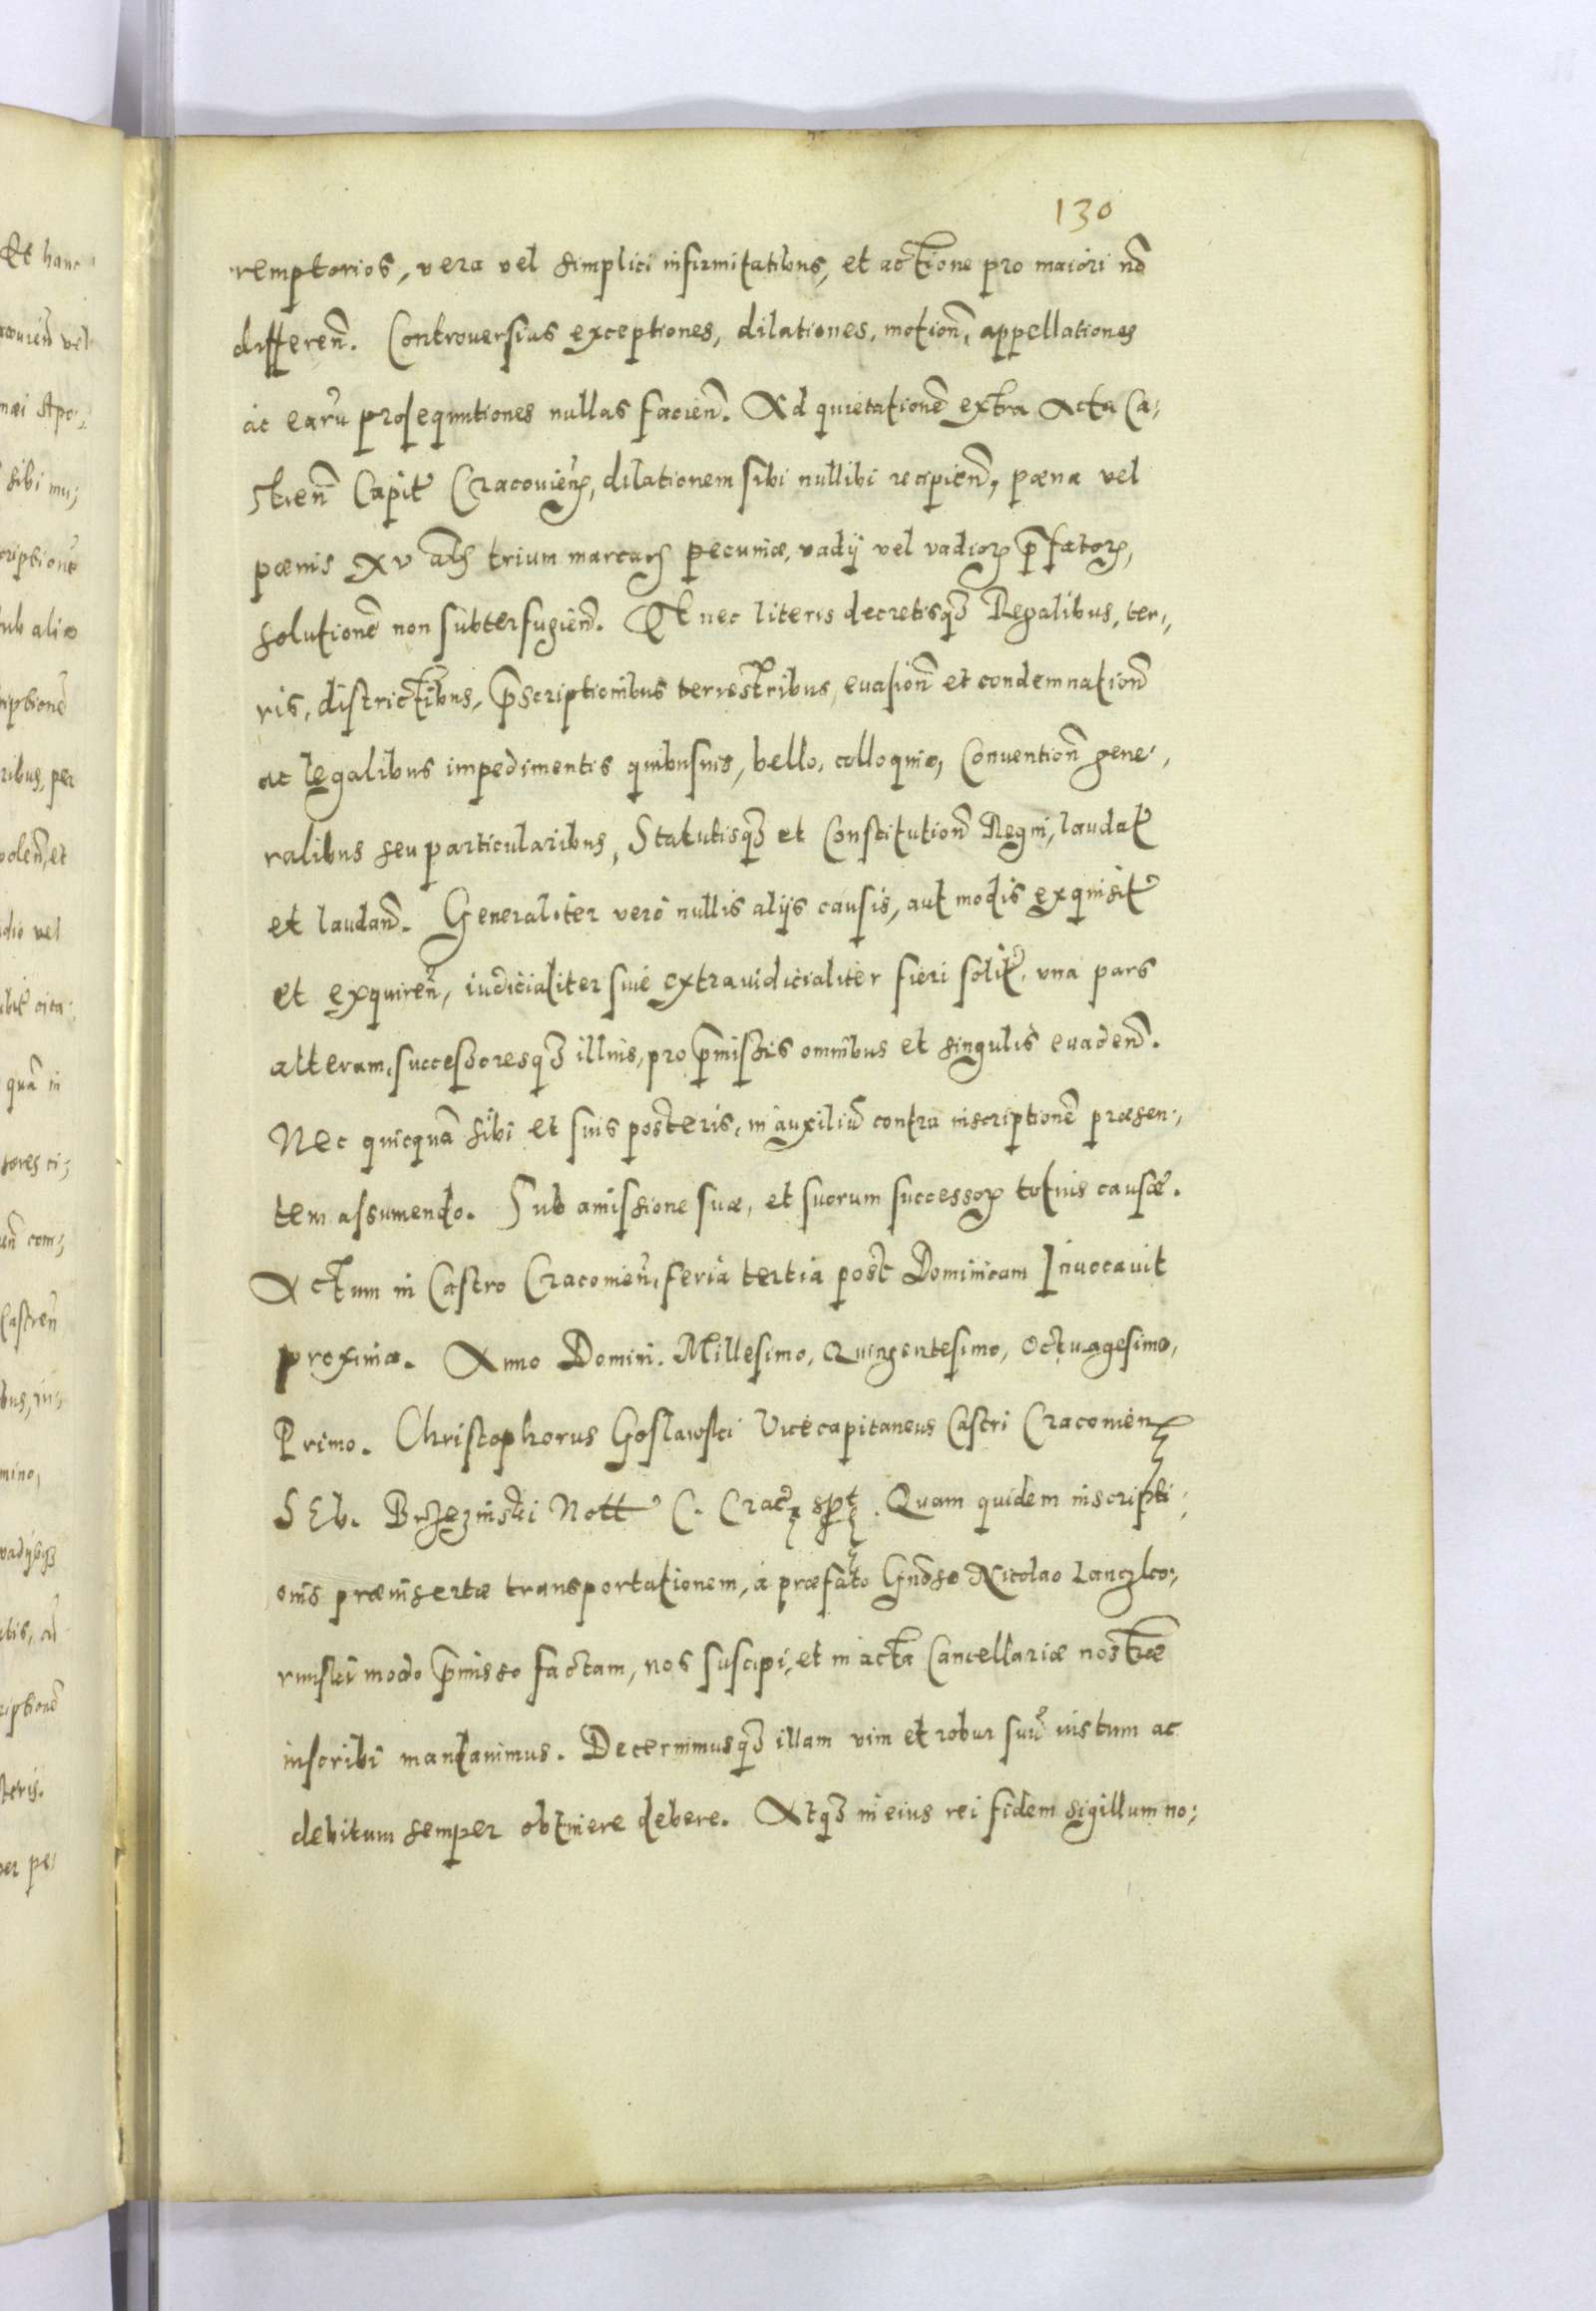 130
remptorios, vera vel simplici infirmitatibus, et actione pro maiori nō
differeñ. Controuersias exceptiones, dilationes, motioñ, appellationes
ac earũ prosequutiones nullas facieñ. Ad quietationē extra Acta Ca-
streñ Capit Cracouieñ, dilationem sibi nullibi recipieñ, pœna vel
pœnis XV als trium marcarꝝ pecuniæ, vadij vel vadiorꝝ p̄fatorꝝ,
solutionē non subterfugieñ. Et nec literis decretisqꝫ Regalibus, ter-
ris, districtibus, p̄scriptionibus terrestribus, euasioñ et condemnatioñ
ac legalibus impedimentis quibusuis, bello, colloquio, Conuentioñ gene-
ralibus seu particularibus, Statutisqꝫ et Constitutioñ Regni, laudat
et laudañ. Generaliter verò nullis alijs causis, aut modis exquisit
et exquireñ, iudicialiter siue extraiudicialiter fieri solit, vna pars
alteram, successoresqꝫ illius, pro p̄missis omnibus et singulis euadeñ.
Nec quicquā sibi et suis posteris, in auxiliũ contra inscriptionē præsen-
tem assumendo. Sub amissione suæ, et suorum successorꝝ totius causæ.
Actum in Castro Cracouieñ, feria tertia post Dominicam Inuocauit
proxima. Anno Domini. Millesimo, Quingentesimo, Octuagesimo,
Primo. Christophorus Goslawski Vicecapitaneus Castri Cracouieñ
SEb. Brzezinski Nott C. Crac spt. Quam quidem inscripti-
onis præinsertæ transportationem, à præfato Gñoso Nicolao Lanczko-
runski modo p̄misso factam, nos suscipi, et in acta Cancellariæ nostræ
inscribi mandauimus. Decernimusqꝫ illam vim et robur suũ iustum ac
debitum semper obtinere debere. Atqꝫ in eius rei fidem sigillum no-